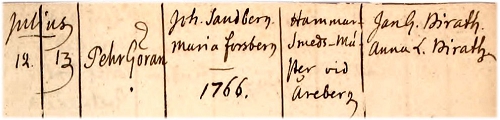 Julius
12. 13
Pehr Göran
Joh. Sandberg.
Maria Forsberg
1766.
Hammar-
Smeds-Mä-
ster vid
Åreberg
Jan G. Birath.
Anna L. Birath